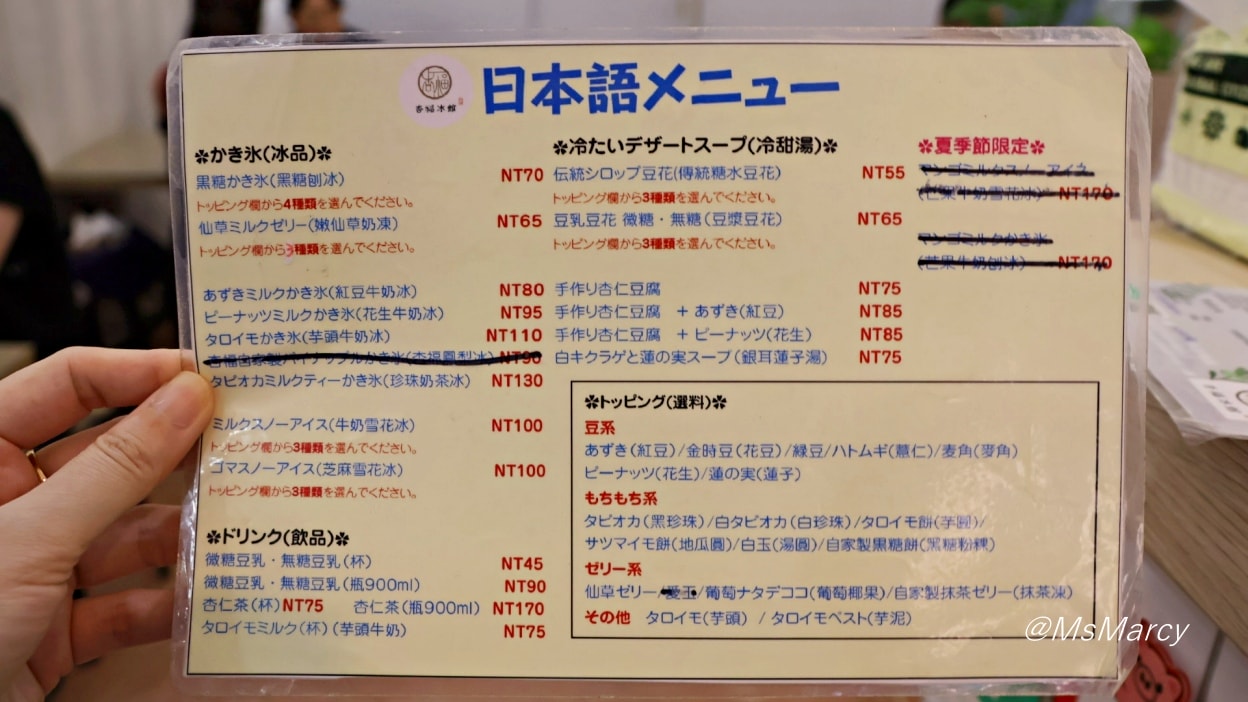 杏福冰館
日本語メニュー
✽かき氷(冰品)✽
黒糖かき氷(黑糖刨冰) NT70
トッピング欄から4種類を選んでください。
仙草ミルクゼリー(嫩仙草奶凍) NT65
トッピング欄から3種類を選んでください。
あずきミルクかき氷(紅豆牛奶冰) NT80
ピーナッツミルクかき氷(花生牛奶冰) NT95
タロイモかき氷(芋頭牛奶冰) NT110
杏福舎家製パイナップルかき氷(杏福鳳梨冰) NT90
タピオカミルクティーかき氷(珍珠奶茶冰) NT130
ミルクスノーアイス(牛奶雪花冰) NT100
トッピング欄から3種類を選んでください。
ゴマスノーアイス(芝麻雪花冰) NT100
トッピング欄から3種類を選んでください。
✽ドリンク(飲品)✽
微糖豆乳・無糖豆乳(杯) NT45
微糖豆乳・無糖豆乳(瓶900ml) NT90
杏仁茶(杯)NT75 杏仁茶(瓶900ml) NT170
タロイモミルク(杯)(芋頭牛奶) NT75
✽冷たいデザートスープ(冷甜湯)✽
伝統シロップ豆花(傳統糖水豆花) NT55
トッピング欄から3種類を選んでください。
豆乳豆花 微糖・無糖(豆漿豆花) NT65
トッピング欄から3種類を選んでください。
手作り杏仁豆腐 NT75
手作り杏仁豆腐 +あずき(紅豆) NT85
手作り杏仁豆腐 +ピーナッツ(花生) NT85
白キクラゲと蓮の実スープ(銀耳蓮子湯) NT75
✽夏季節限定✽
マンゴミルクスノーアイス
(芒果牛奶雪花冰) NT170
マンゴミルクかき氷
(芒果牛奶刨冰) NT170
✽トッピング(選料)✽
豆系
あずき(紅豆)/金時豆(花豆)/緑豆/ハトムギ(薏仁)/麦角(麥角)
ピーナッツ(花生)/蓮の実(蓮子)
もちもち系
タピオカ(黑珍珠)/白タピオカ(白珍珠)/タロイモ餅(芋圓)/
サツマイモ餅(地瓜圓)/白玉(湯圓)/自家製黒糖餅(黑糖粉粿)
ゼリー系
仙草ゼリー/愛玉/葡萄ナタデココ(葡萄椰果)/自家製抹茶ゼリー(抹茶凍)
その他 タロイモ(芋頭) / タロイモペスト(芋泥)
@MsMarcy